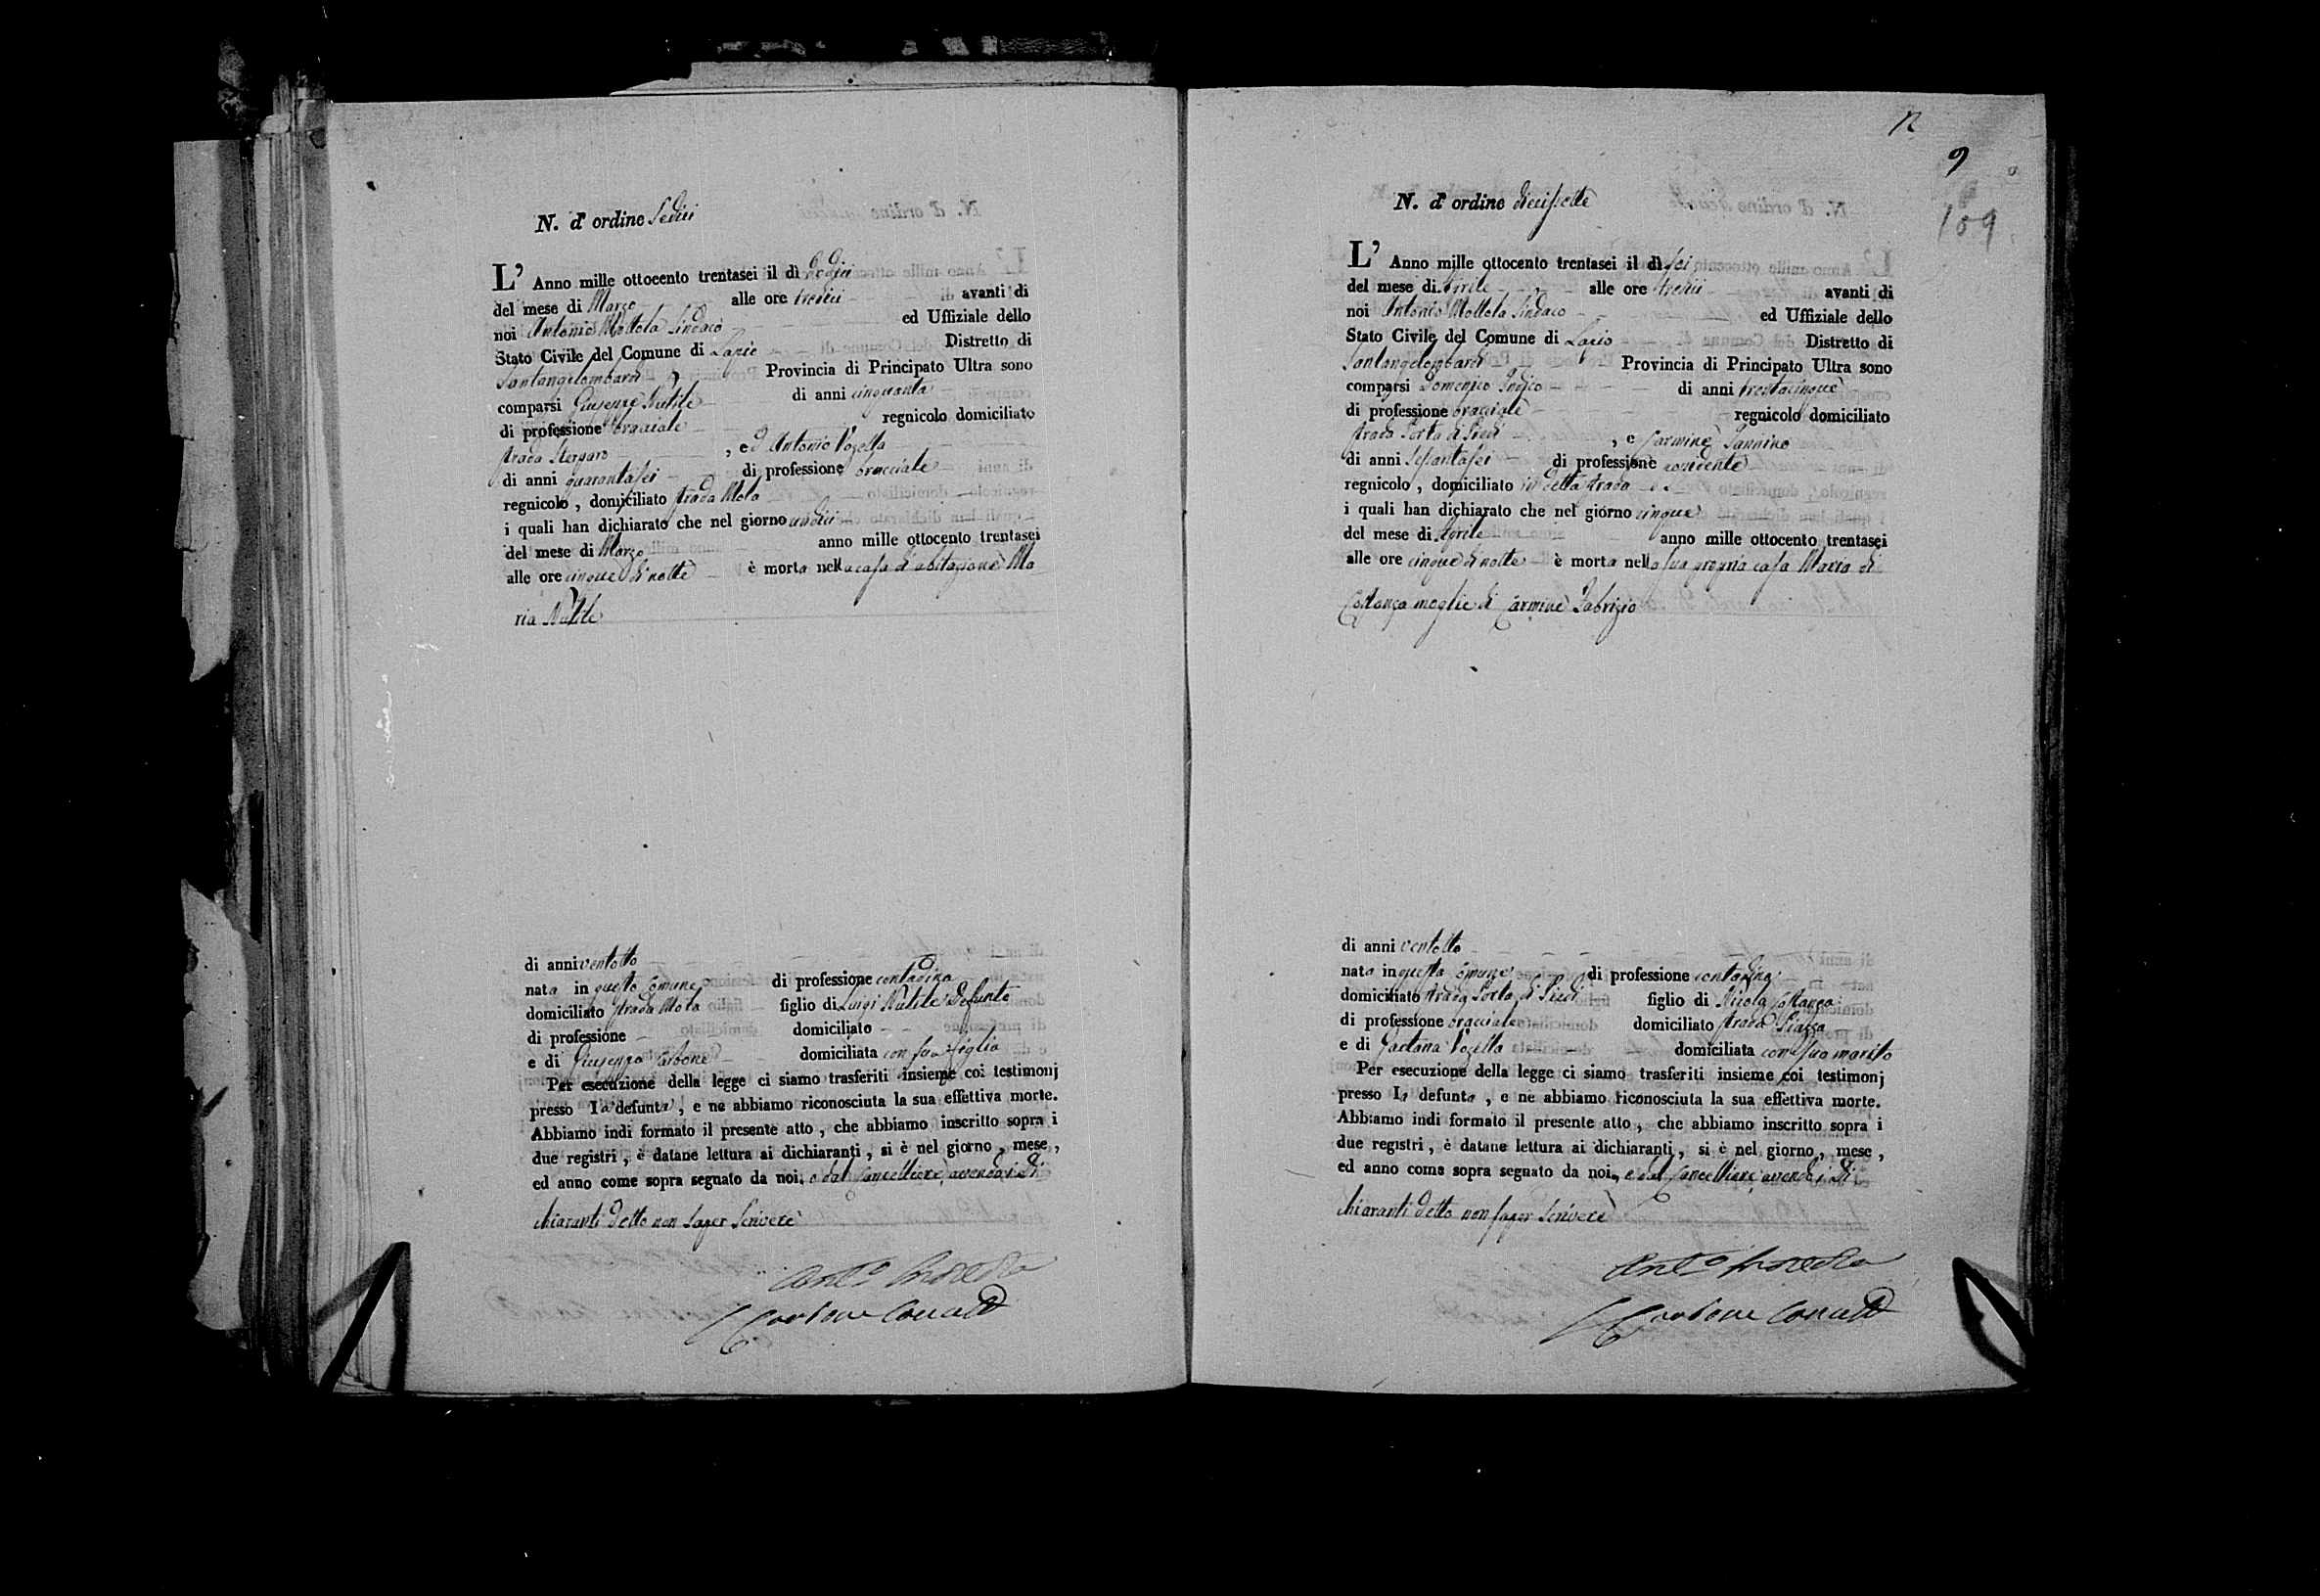 N. d' ordine Sedici
L' Anno mille ottocento trentasei il dì dodici
del mese di Marzo alle ore tredici avanti di
noi Antonio Mottola Sindaco ed Uffiziale dello
Stato Civile del Comune di Lapio Distretto di
Santangelombardi Provincia di Principato Ultra sono
comparsi Giuseppe Nutile di anni cinquanta
di professione bracciale regnicolo domiciliato
strada , ed Antonio Vozella
di anni quarantasei di professione bracciale
regnicolo , domiciliato strada Mola
i quali han dichiarato che nel giorno undici
del mese di Marzo anno mille ottocento trentasei
alle ore cinque di notte è morta nella casa di abitazione Ma
ria Nutile
di anni ventotto
nata in questo Comune di professione contadina
domiciliato strada Mola figlio di Luigi Nutile defunto
di professione domiciliato
e di Giuseppa Carbone domiciliata con sua figlia
Per esecuzione della legge ci siamo trasferiti insieme coi testimonj
presso la defunta , e ne abbiamo riconosciuta la sua effettiva morte.
Abbiamo indi formato il presente atto , che abbiamo inscritto sopra i
due registri , è datane lettura ai dichiaranti , si è nel giorno , mese ,
ed anno come sopra segnato da noi, e dal Cancelliere, avendo i di
chiaranti detto non saper scrivere
Ant.o Mottola
Carbone Cancell
12
9
109
N. d' ordine diecissette
L' Anno mille ottocento trentasei il dì sei
del mese di Aprile alle ore tredici avanti di
noi Antonio Mottola Sindaco ed Uffiziale dello
Stato Civile del Comune di Lapio Distretto di
Santangelombardi Provincia di Principato Ultra sono
comparsi Domenico di anni trentacinque
di professione bracciale regnicolo domiciliato
strada Porta di Piedi , e Carmine Iannino
di anni sessantasei di professione possidente
regnicolo , domiciliato in detta strada
i quali han dichiarato che nel giorno cinque
del mese di Aprile anno mille ottocento trentasei
alle ore cinque di notte è morta nella sua propria casa Maria di
Costanzo moglie di Carmine Fabrizio
di anni ventotto
nata in questo Comune di professione contadina
domiciliato strada Porta di Piedi figlio di Nicola Costanzo
di professione bracciale domiciliato strada Piazza
e di Gaetana Vozella domiciliata con suo marito
Per esecuzione della legge ci siamo trasferiti insieme coi testimonj
presso la defunta , e ne abbiamo riconosciuta la sua effettiva morte.
Abbiamo indi formato il presente atto , che abbiamo inscritto sopra i
due registri , è datane lettura ai dichiaranti , si è nel giorno , mese ,
ed anno come sopra segnato da noi, e dal Cancelliere, avendo i di
chiaranti detto non saper scrivere
Ant.o Mottola
Carbone Cancell